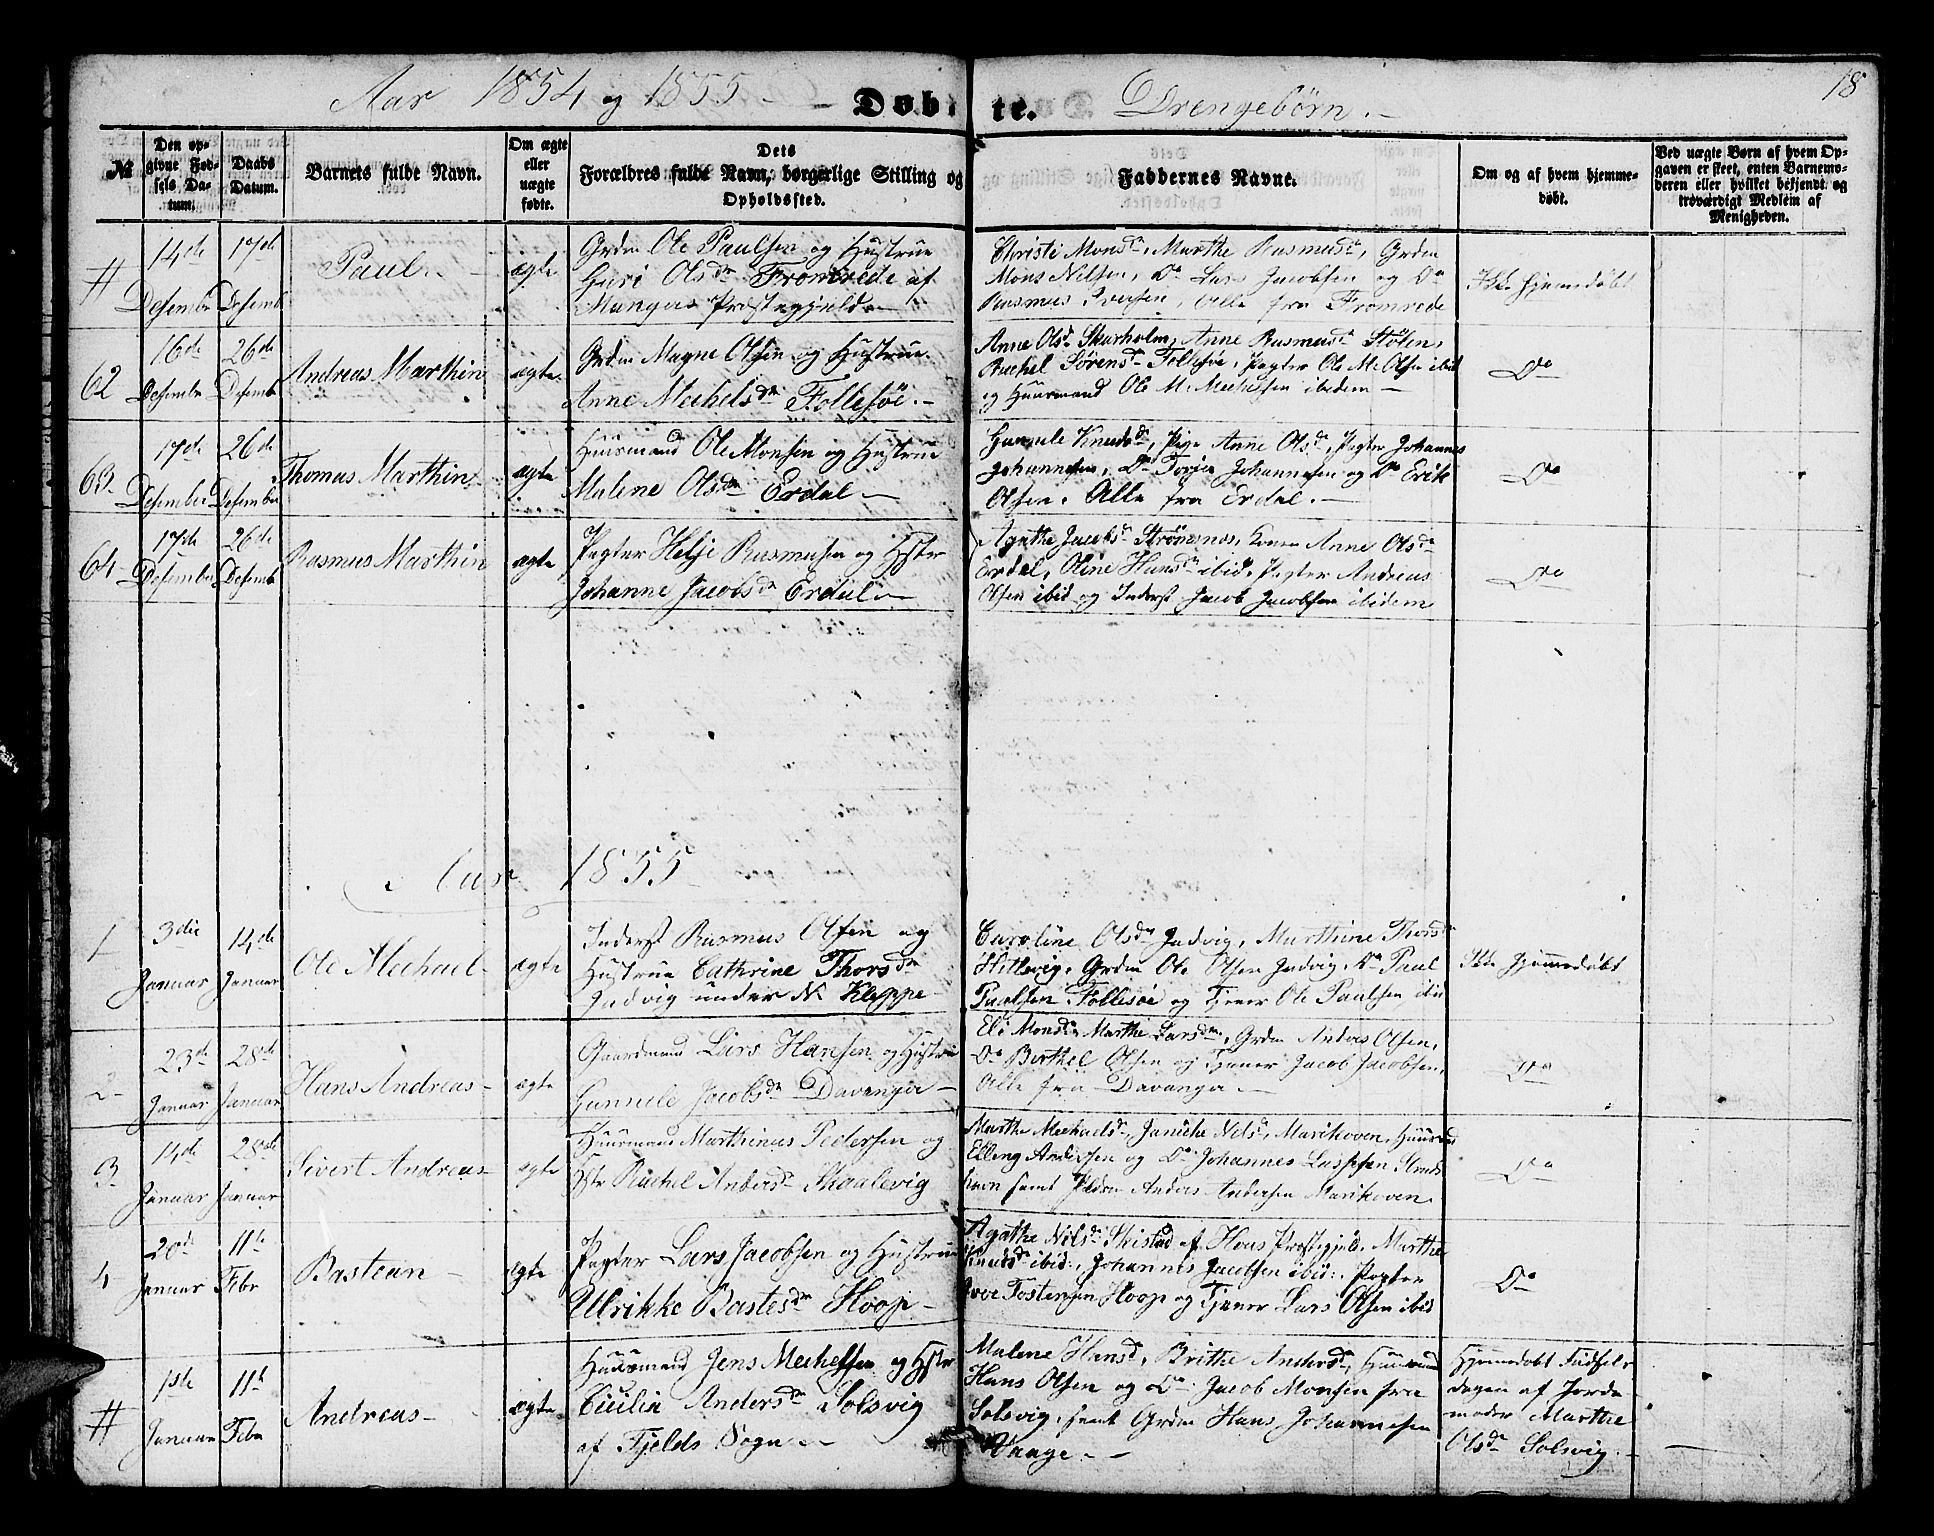 Aar 1854 og 1855 - Døbte. Drengebørn. 18
№
Den op-
givne Fød-
sels Da-
tum.
Daabs
Datum.
Barnets fulde Navn.
Om ægte
eller
uægte
fødte.
Dets
Forældres fulde Navn, borgerlige Stilling og
Opholdssted.
Faddernes Navne.
Om og af hvem hjemme-
døbt.
Ved uægte Børn af hvem Op-
gaven er skeet, enten Barnemo-
deren eller hvilket bekjendt og
troværdigt Medlem af
Menigheden.
#
14de
Desember
17de
Desemb
Paul
ægte
Grdm Ole Paulsen og Hustrue
Guri Olsdr Fromrede af
Manger Præstegjeld
Christi Monsdr, Marthe Rasmusdr, Grdm
Mons Nilsen, Do Lars Jacobsen og Do
Rasmus Iversen, Alle fra Fromrede
Ikke hjemdøbt
62
16de
Desember
26de
Desemb
Andreas Marthin
ægte
Grdm Magne Olsen og Hustrue
Anne Mechelsdr Follesøe.-
Anne Olsd Skarholm, Anne Rasmusd Støten,
Rachel Sørensd Follesøe, Pagter Ole M. Olsen ibid
og Huusmand Ole M. Mechelsen ibidem-
Do
63
17de
Desember
26de
Desember
Thomas Marthin
ægte
Huusmand Ole Monsen og Hustrue
Malene Olsdr Erdal
Gunnile Knudsdr, Pige Anne Olsdr, Pagter Johannes
Johannesen, Do Torjer Johannesen og Do Erik
Olsen. Alle fra Erdal.-
Do
64
17de
Desember
26de
Desemb
Rasmus Marthin
ægte
Pagter Helje Rasmusen og Hstr
Johanne Jacobsdr Erdal
Agathe Jacobsdr Strømsnes, Kone Anne Olsdr
Erdal, Oline Hansdr ibid, Pagter Andreas
Olsen ibid og Inderst Jacob Jacobsen ibidem
Do
Aar 1855
1
3die
Januar
14de
Januar
Ole Mechael
ægte
Inderst Rasmus Olsen og
Hustrue Cathrine Thorsdr
Indvig under N. Kleppe
Caroline Olsdr Indvig, Marthine Thorsdr
Hetlevig, Grdm Ole Olsen Indvig, Do Paul
Paulsen Follesøe og Tjener Ole Paulsen ibid
Ikke hjemmedøbt
2
23de
Januar
28de
Januar
Hans Andreas
ægte
Gaardmand Lars Hansen og Hustrue
Gunnile Jacobsdr Davanger
Eli Monsdr Marthe Larsdr, Grdm Anders Olsen,
Do Berthel Olsen og Tjener Jacob Jacobsen,
Alle fra Davanger
Do
3
14de
Januar
28de
Januar
Sivert Andreas
ægte
Huusmand Marthinus Pedersen og
Hstr Rachel Andersdr Skaalevig
Marthe Mechaelsdr, Janiche Nilsdr, Marikoven, Huusmd
Elling Andersen og Do Johannes Lassesen Strus
havn samt Andrs Andersen Marikoven
Do
4
20de
Januar
11te
Febr
Bastean
ægte
Pagter Lars Jacobsen og Hustrue
Ulrikke Bastesdr Hoop
Agathe Nilsdr Skistad af Hous Præstegjeld, Marthe
Knudsdr ibid:, Johannes Jacobsen ibid:, Pagter
Iver Tostensen Hoop og Tjener Lars Olsen ibid
Do
#
1ste
Januar
11te
Febr
Andreas
ægte
Huusmand Jens Mechelsen og Hstr
Cicilia Andersdr Solsvig
af Fjelds Sogn
Malene Hansd, Brithe Andersdr, Huusmd
Hans Olsen og Do Jacob Monsen fra
Solsvig, samt Grdm Hans Johannesen
Vaage
Hjemmedøbt Fødsels
dagen af Jorde
moder Marthe
Olsdr Solsvig